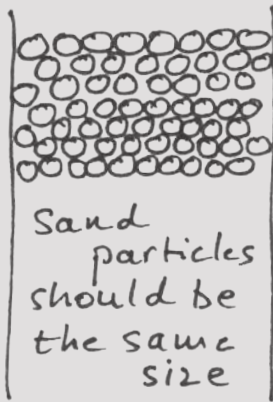 Sand
particles
should be
the same
size